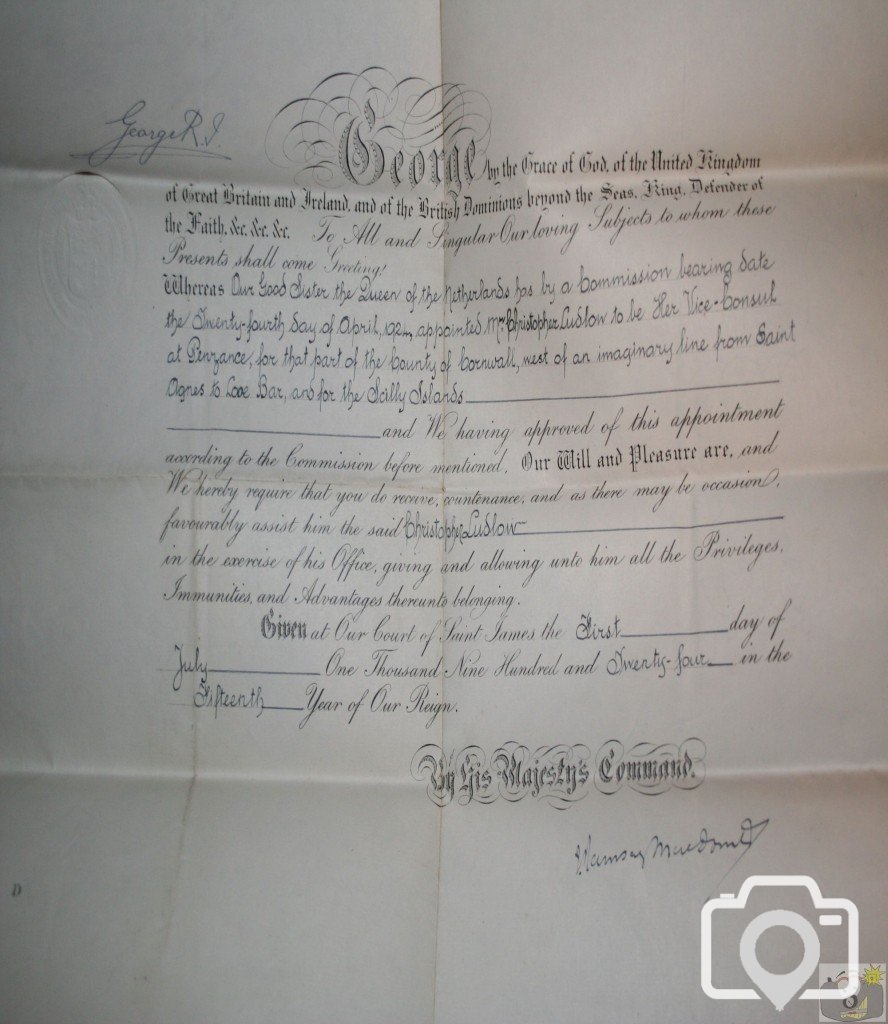 George R.I.
George by the Grace of God, of the United Kingdom
of Great Britain and Ireland, and of the British Dominions beyond the Seas, King, Defender of
the Faith, &c. &c. &c. To All and Singular Our loving Subjects to whom these
Presents shall come Greeting!
Whereas Our Good Sister the Queen of the Netherlands has by a Commission bearing date
the Twenty-fourth day of April, 1924, appointed Mr. Christopher Ludlow to be Her Vice-Consul
at Penzance, for that part of the County of Cornwall, west of an imaginary line from Saint
Agnes to Looe Bar, and for the Scilly Islands
and We having approved of this appointment
according to the Commission before mentioned, Our Will and Pleasure are, and
We hereby require that you do receive, countenance, and as there may be occasion,
favourably assist him the said Christopher Ludlow
in the exercise of his Office, giving and allowing unto him all the Privileges,
Immunities, and Advantages thereunto belonging.
Given at Our Court of Saint James the First day of
July One Thousand Nine Hundred and Twenty-four in the
Fifteenth Year of Our Reign.
By His Majesty's Command.
Ramsay MacDonald
D